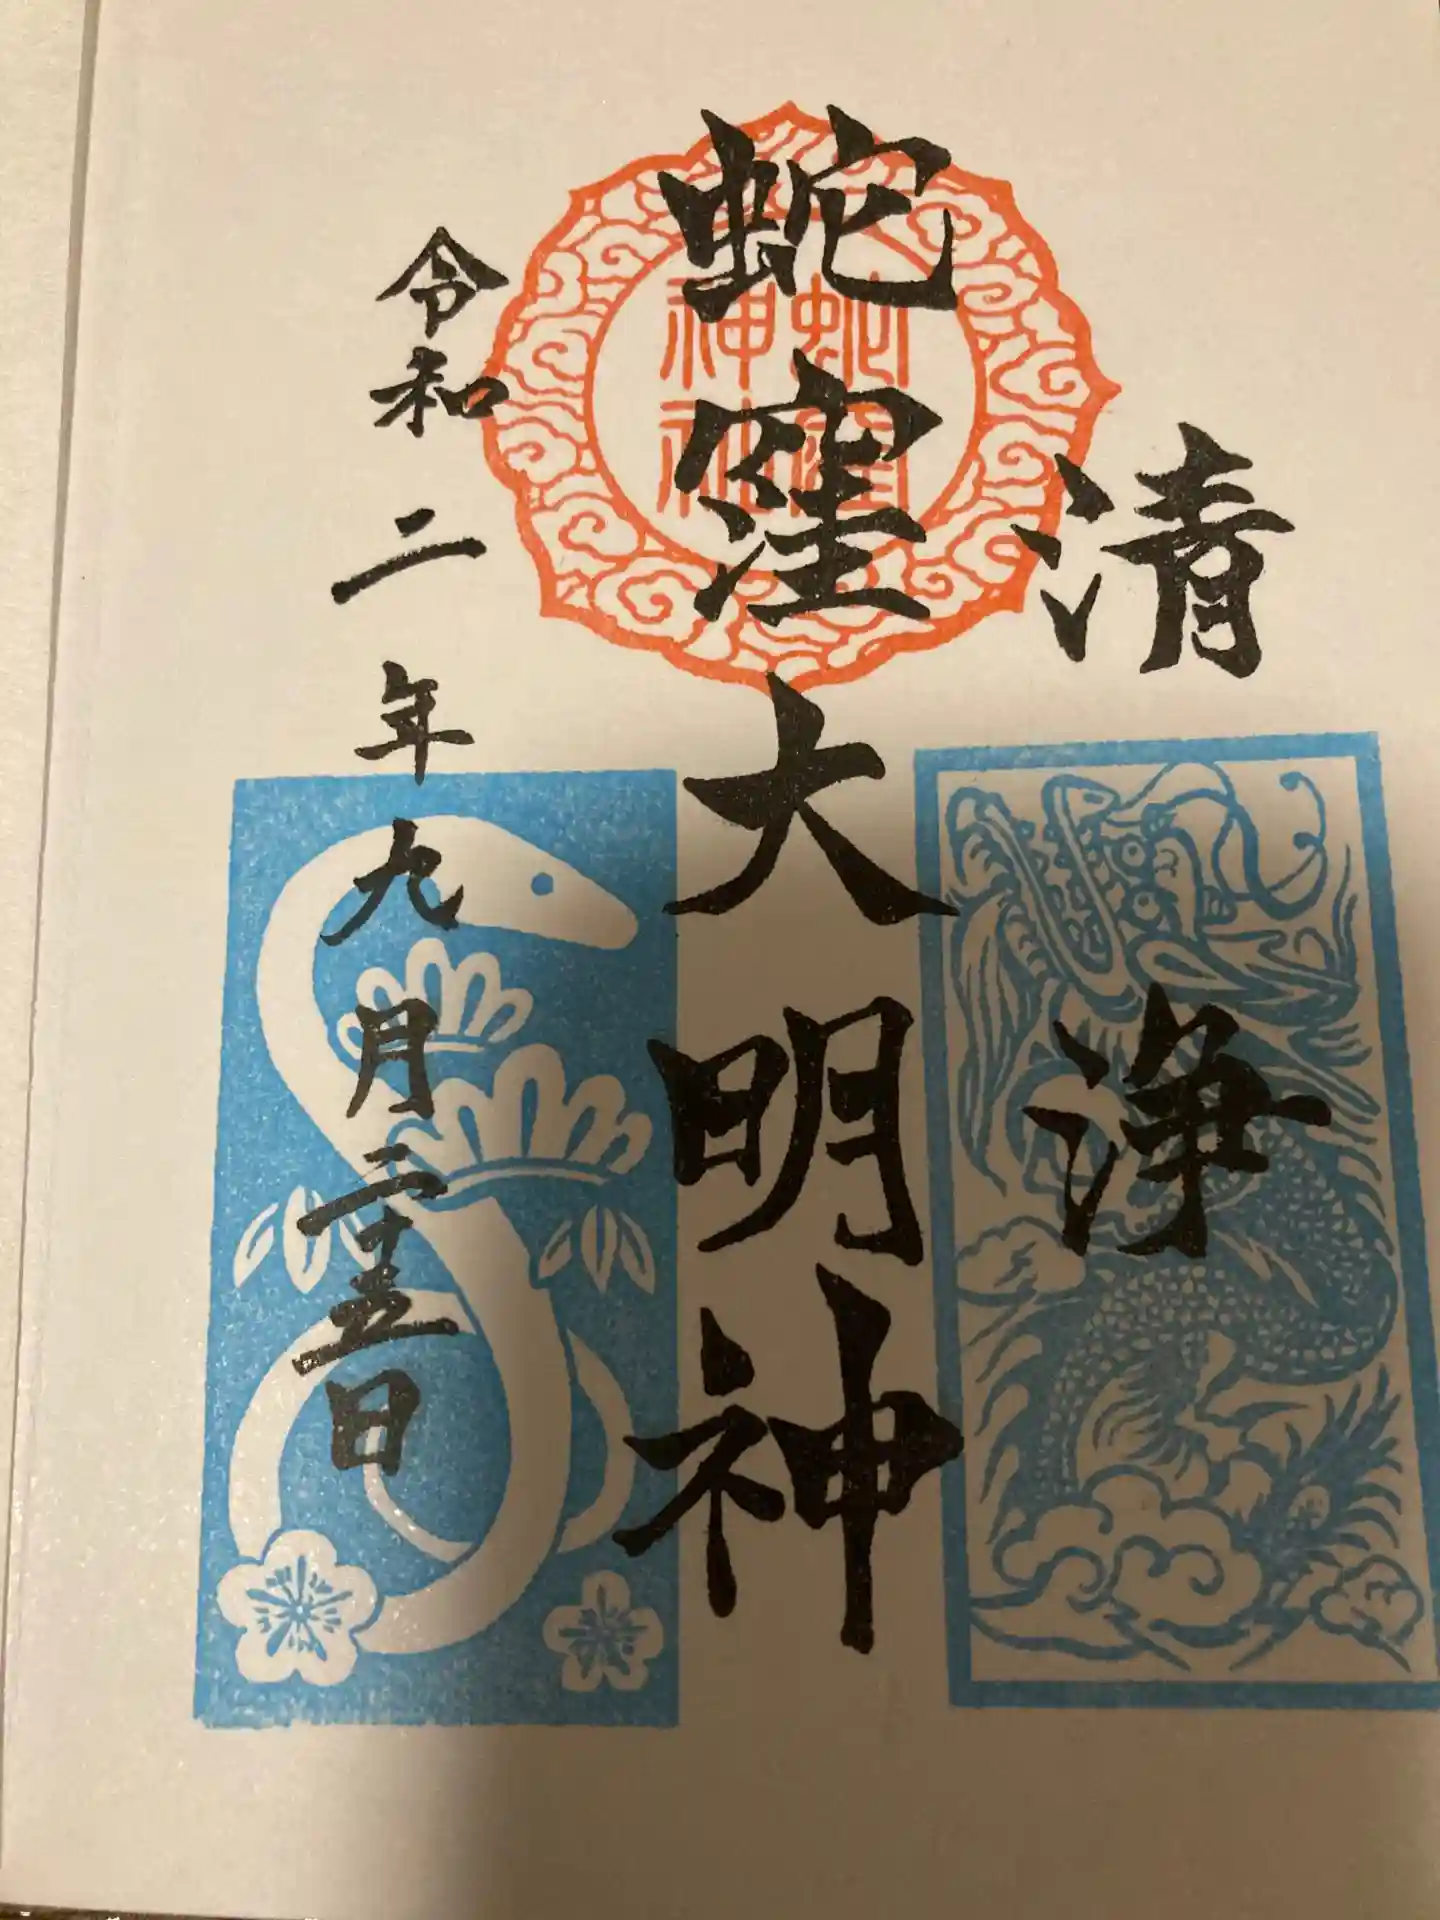 清浄
蛇窪大明神
令和二年九月二十五日
蛇窪
神社